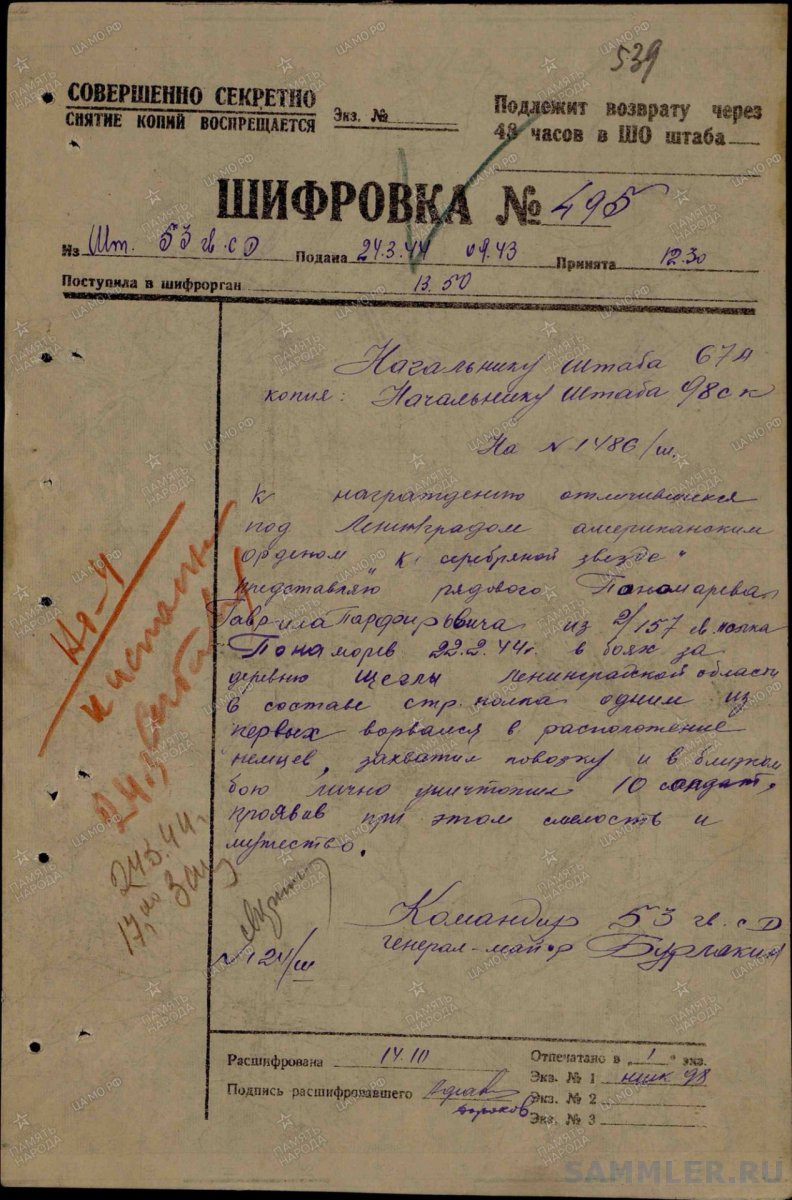 539
СОВЕРШЕННО СЕКРЕТНО
СНЯТИЕ КОПИЙ ВОСПРЕЩАЕТСЯ
Экз. №
Подлежит возврату через
48 часов в ШО штаба
ШИФРОВКА № 495
Из Шт. 53 гв. сД Подана 24.3.44 09.43 Принята 12.30
Поступила в шифрорган 13.50
Начальнику штаба 67А
копия: Начальнику штаба 98 ск
На № 1486/ш.
К награждению отличившихся
под Ленинградом американским
орденом "К серебряной звезде"
представляю рядового Пономарева
Гаврила Парфирьвича из 2/157 гв. полка
Понаморев 22.2.44г. в боях за
деревню Щеглы Ленинградской области
в составе стр. полка одним из
первых ворвался в расположение
немцев, захватил повозку и в близком
бою лично уничтожил 10 солдат,
проявив при этом смелость и
мужество.
Командир 53 гв. сД
генерал-майор Бурлакин
№ 124/ш
24.3
24.3.44г.
Расшифрована 14.10
Подпись расшифровавшего
Отпечатано в "1" экз.
Экз. № 1 98
Экз. № 2
Экз. № 3
ПАМЯТЬ НАРОДА
ЦАМО.РФ
SAMMLER.RU